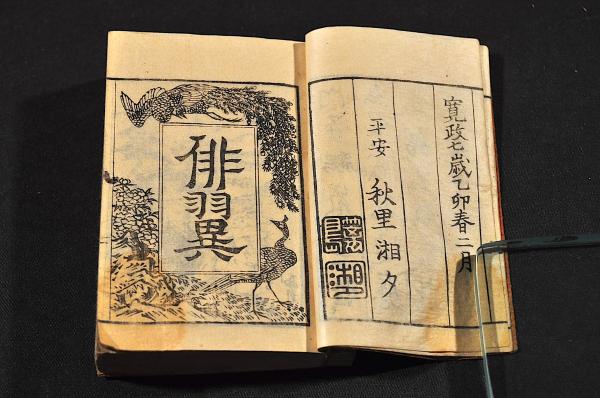 寛政七歳乙卯春二月
平安 秋里湘夕
俳翼